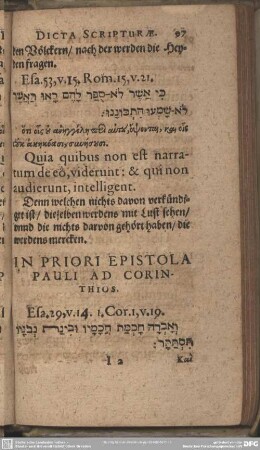 DICTA SCRIPTURÆ. 97
den Völckern/ nach der werden die Hey-
den fragen.
Esa.53,v.15. Rom.15,v.21.
כִּי אֲשֶׁר לֹא־סֻפַּר לָהֶם רָאוּ וַאֲשֶׁר
לֹא־שָׁמְעוּ הִתְבּוֹנָנוּ:
ὅτι οἷς οὐκ ἀνηγγέλη περὶ αὐτοῦ, ὄψονται, καὶ οἳ
οὐκ ἀκηκόασι, συνήσουσι.
Quia quibus non est narra-
tum de eo, viderunt; & qui non
audierunt, intelligent.
Denn welchen nichts davon verkündi-
get ist/ dieselben werdens mit Lust sehen/
unnd die nichts darvon gehört haben/ die
werdens mercken.
IN PRIORI EPISTOLA
PAULI AD CORIN-
THIOS.
Esa.29,v.14. 1.Cor.1,v.19.
וְאָבְדָה חָכְמַת חֲכָמָיו וּבִינַת נְבֹנָיו
תִּסְתַּתָּר:
I 2